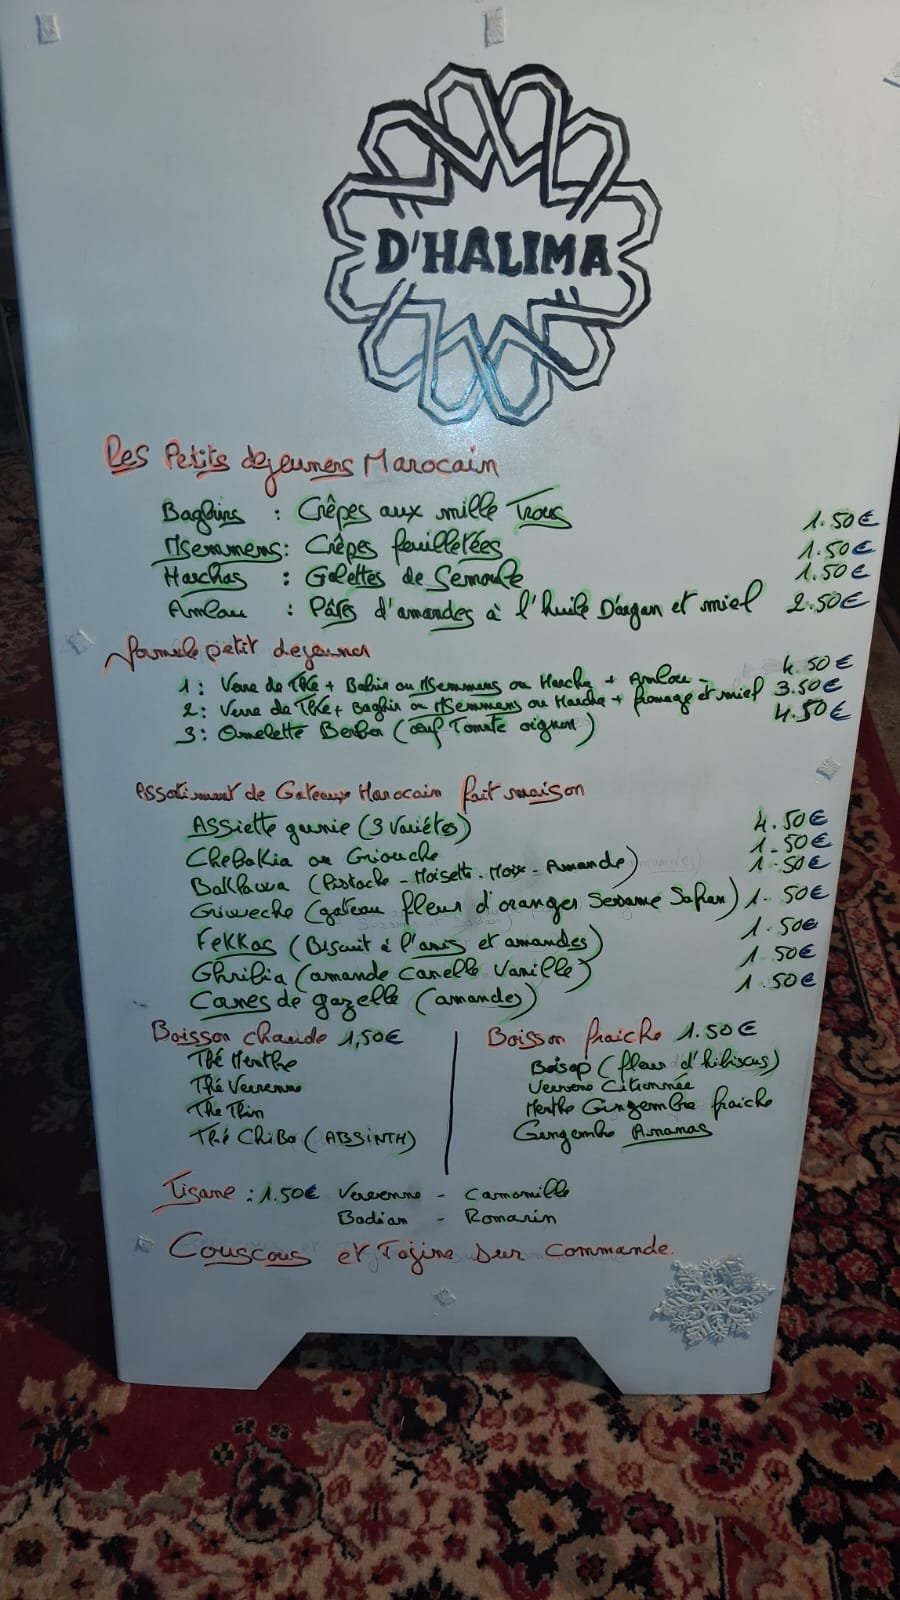 D'HALIMA
Les Petits dejeuners Marocain
Baghirs : Crêpes aux mille Trous 1.50€
Msemmens : Crêpes feuilletées 1.50€
Harchas : Galettes de Semoule 1.50€
Amlou : Pâtes d'amandes à l'huile D'argan et miel 2.50€
formule petit dejeuner
1 : Verre de Thé + Bahir ou Msemmens ou Harcha + Amlou - 4.50€
2 : Verre de Thé + Baghir ou Msemmens ou Harcha + fromage et miel 3.50€
3 : Omelette Berber (œuf Tomate oignon) 4.50€
Assortiment de Gateaux Marocain fait maison
Assiette garnie (3 Variétés) 4.50€
Chebakia ou Griouche 1.50€
Baklawa (Pistache - Noisette - Noix - Amande) 1.50€
Griweche (gateau fleur d'oranger Sesame Safran) 1.50€
Fekkas (Biscuit à l'anis et amandes) 1.50€
Ghribia (amande Canelle Vanille) 1.50€
Cornes de gazelle (amandes) 1.50€
Boisson chaude 1,50€
Thé Menthe
Thé Verveine
Thé Thin
Thé Chiba (ABSINTH)
Boisson fraiche 1.50€
Bissap (fleur d'hibiscus)
Verveine Citronnée
Menthe Gingembre fraiche
Gingembre Ananas
Tisane : 1.50€ Verveine - Camomille
Badian - Romarin
Couscous et Tajine sur commande.